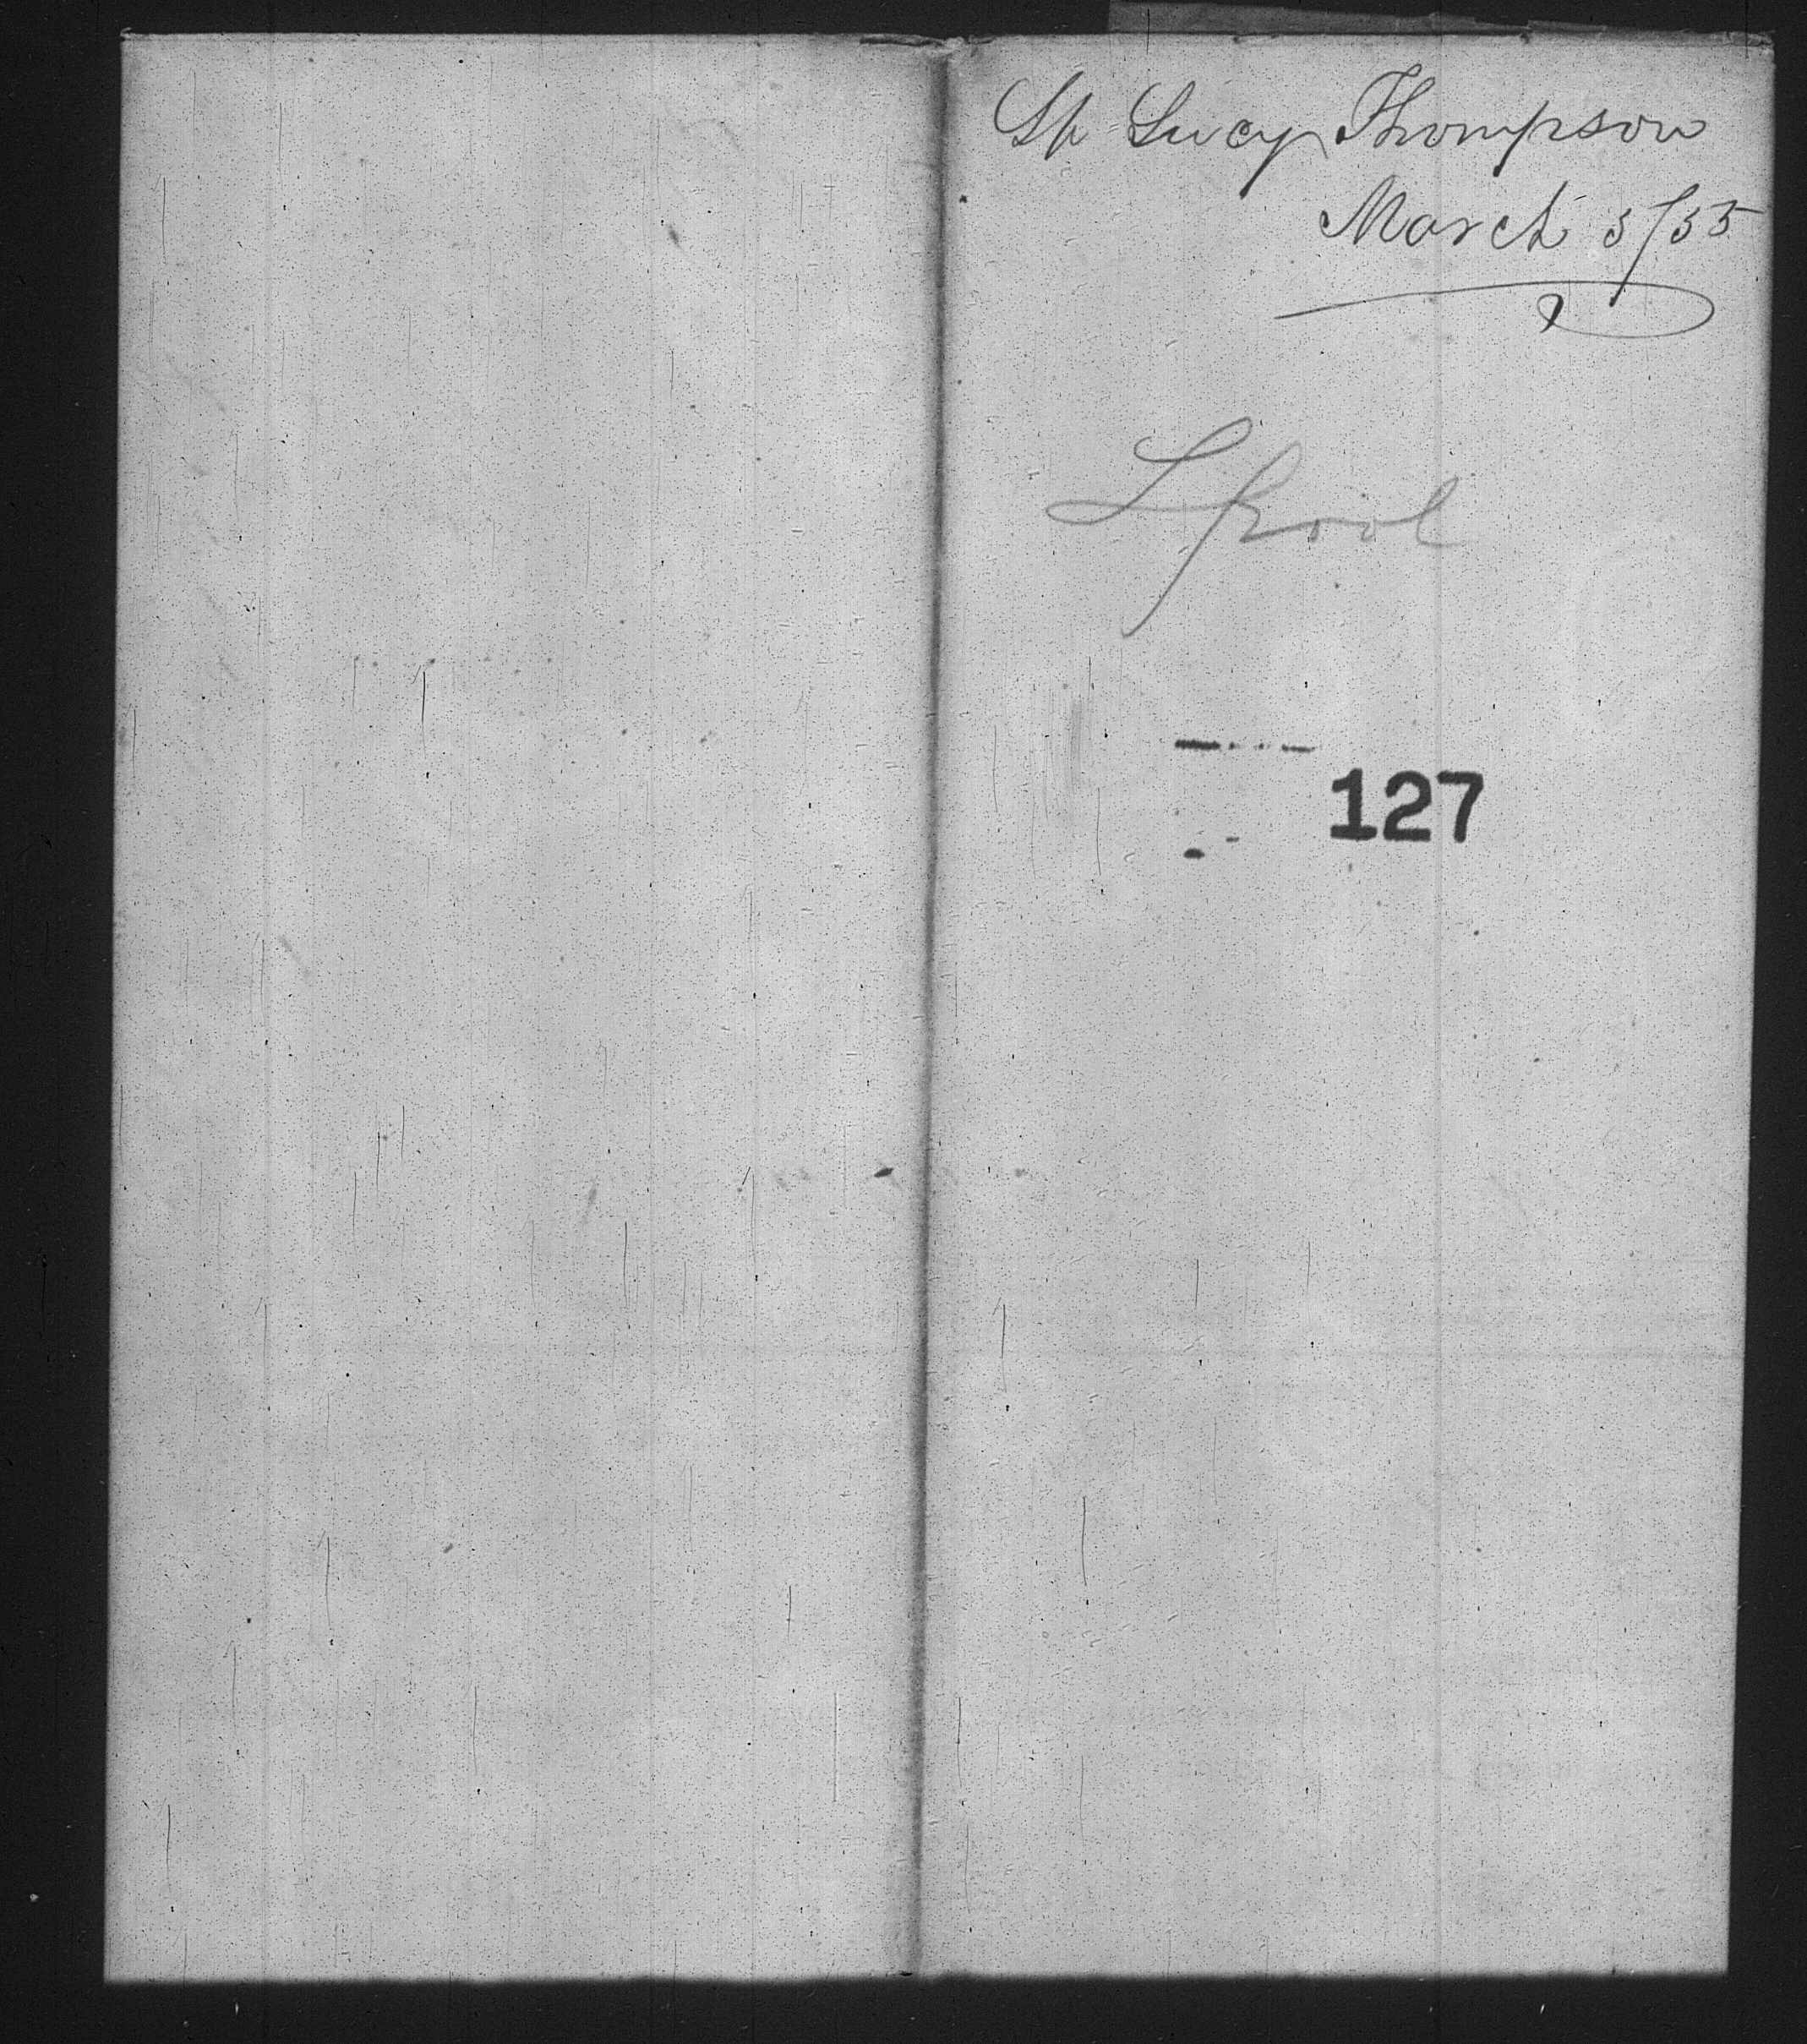 Sh Lucy Thompson
March 5/55
Lpool
127